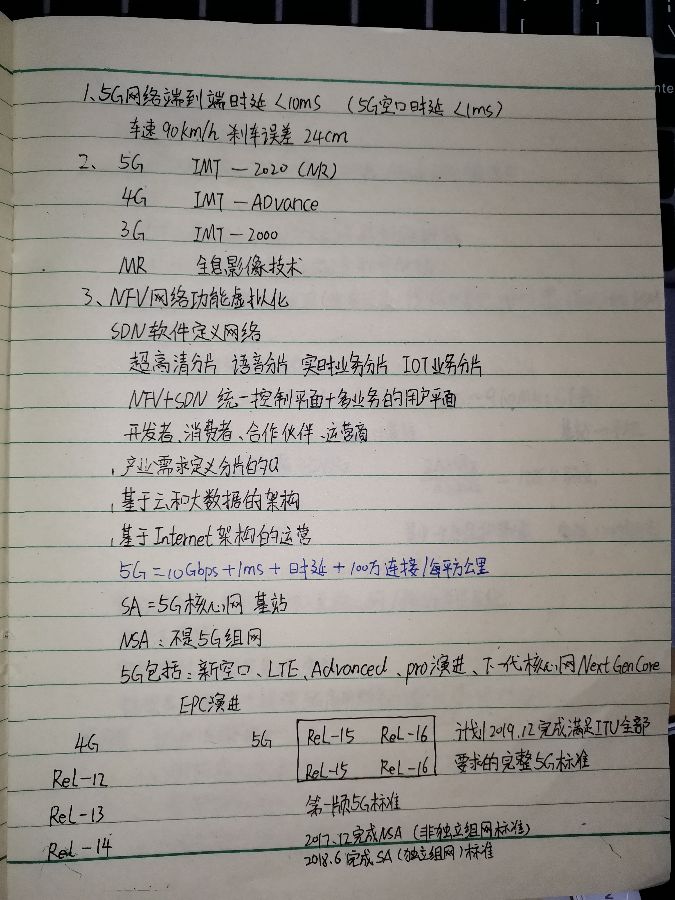 1、5G网络端到端时延<10ms （5G空口时延<1ms）
车速90km/h 刹车误差 24cm
2、 5G IMT—2020（NR）
4G IMT—ADvance
3G IMT—2000
MR 全息影像技术
3、NFV网络功能虚拟化
SDN软件定义网络
超高清分片 语音分片 实时业务分片 IOT业务分片
NFV+SDN 统一控制平面+多业务的用户平面
开发者、消费者、合作伙伴、运营商
产业需求定义分片的Q
基于云和大数据的架构
基于Internet架构的运营
5G=10Gbps+1ms+时延+100万连接/每平方公里
SA=5G核心网 基站
NSA：不是5G组网
5G包括：新空口、LTE、Advanced、pro演进、下一代核心网NextGenCore
EPC演进
4G 5G ReL-15 ReL-16 计划2019.12完成满足ITU全部
ReL-12 ReL-15 ReL-16 要求的完整5G标准
ReL-13 第一版5G标准
ReL-14 2017.12完成NSA（非独立组网标准）
2018.6完成SA（独立组网）标准